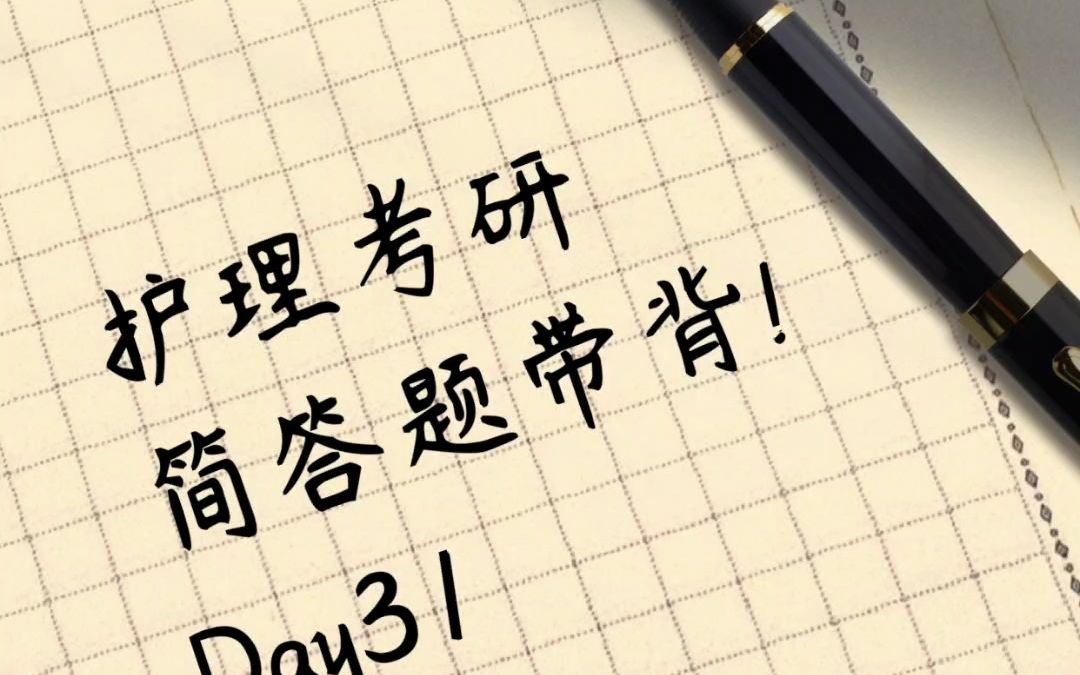 护理考研
简答题带背!
Day31